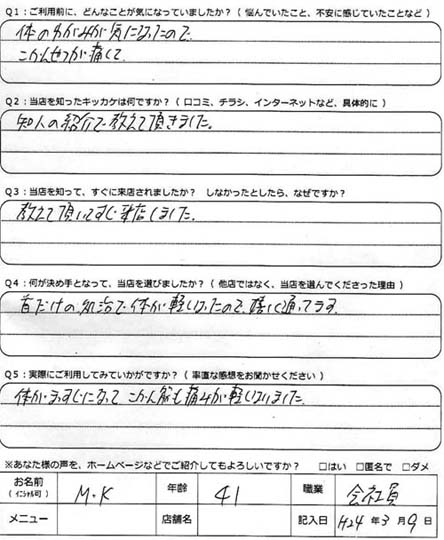 Q1：ご利用前に、どんなことが気になっていましたか？（ 悩んでいたこと、不安に感じていたことなど ）
体のゆがみが気になったので、
こかんせつが痛くて
Q2：当店を知ったキッカケは何ですか？（ 口コミ、チラシ、インターネットなど、具体的に ）
知人の紹介で教えて頂きました。
Q3：当店を知って、すぐに来店されましたか？　しなかったとしたら、なぜですか？
教えて頂いてすぐ来店しました。
Q4：何が決め手となって、当店を選びましたか？（ 他店ではなく、当店を選んでくださった理由 ）
首だけの処治で体が軽くなったので、嬉しく通ってます。
Q5：実際にご利用してみていかがですか？（ 率直な感想をお聞かせください ）
体がまっすぐになって こかん節も痛みが軽くなりました。
※あなた様の声を、ホームページなどでご紹介してもよろしいですか？　□はい　□匿名で　□ダメ
お名前（ｲﾆｼｬﾙ可） M・K 年齢 41 職業 会社員
メニュー 店舗名 記入日 H24 年 3 月 9 日